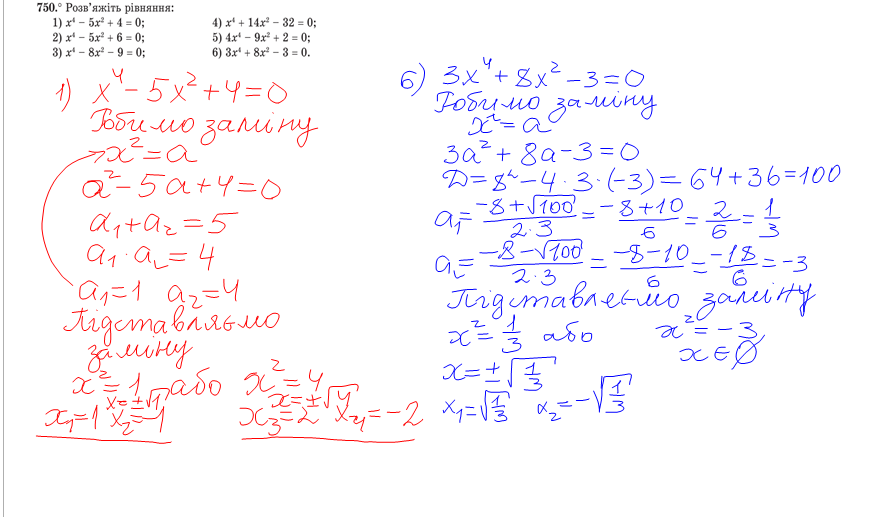 750.° Розв'яжіть рівняння:
1) x⁴ − 5x² + 4 = 0;
2) x⁴ − 5x² + 6 = 0;
3) x⁴ − 8x² − 9 = 0;
4) x⁴ + 14x² − 32 = 0;
5) 4x⁴ − 9x² + 2 = 0;
6) 3x⁴ + 8x² − 3 = 0.
1) x⁴ − 5x² + 4 = 0
Робимо заміну
x² = a
a² − 5a + 4 = 0
a₁ + a₂ = 5
a₁ · a₂ = 4
a₁ = 1 a₂ = 4
Підставляємо
заміну
x² = 1 або x² = 4
x = ±√1 x = ±√4
x₁ = 1 x₂ = −1 x₃ = 2 x₄ = −2
6) 3x⁴ + 8x² − 3 = 0
Робимо заміну
x² = a
3a² + 8a − 3 = 0
D = 8² − 4 · 3 · (−3) = 64 + 36 = 100
a₁ = (−8 + √100)/(2·3) = (−8 + 10)/6 = 2/6 = 1/3
a₂ = (−8 − √100)/(2·3) = (−8 − 10)/6 = −18/6 = −3
Підставляємо заміну
x² = 1/3 або x² = −3
x = ±√(1/3) x ∈ ∅
x₁ = √(1/3) x₂ = −√(1/3)